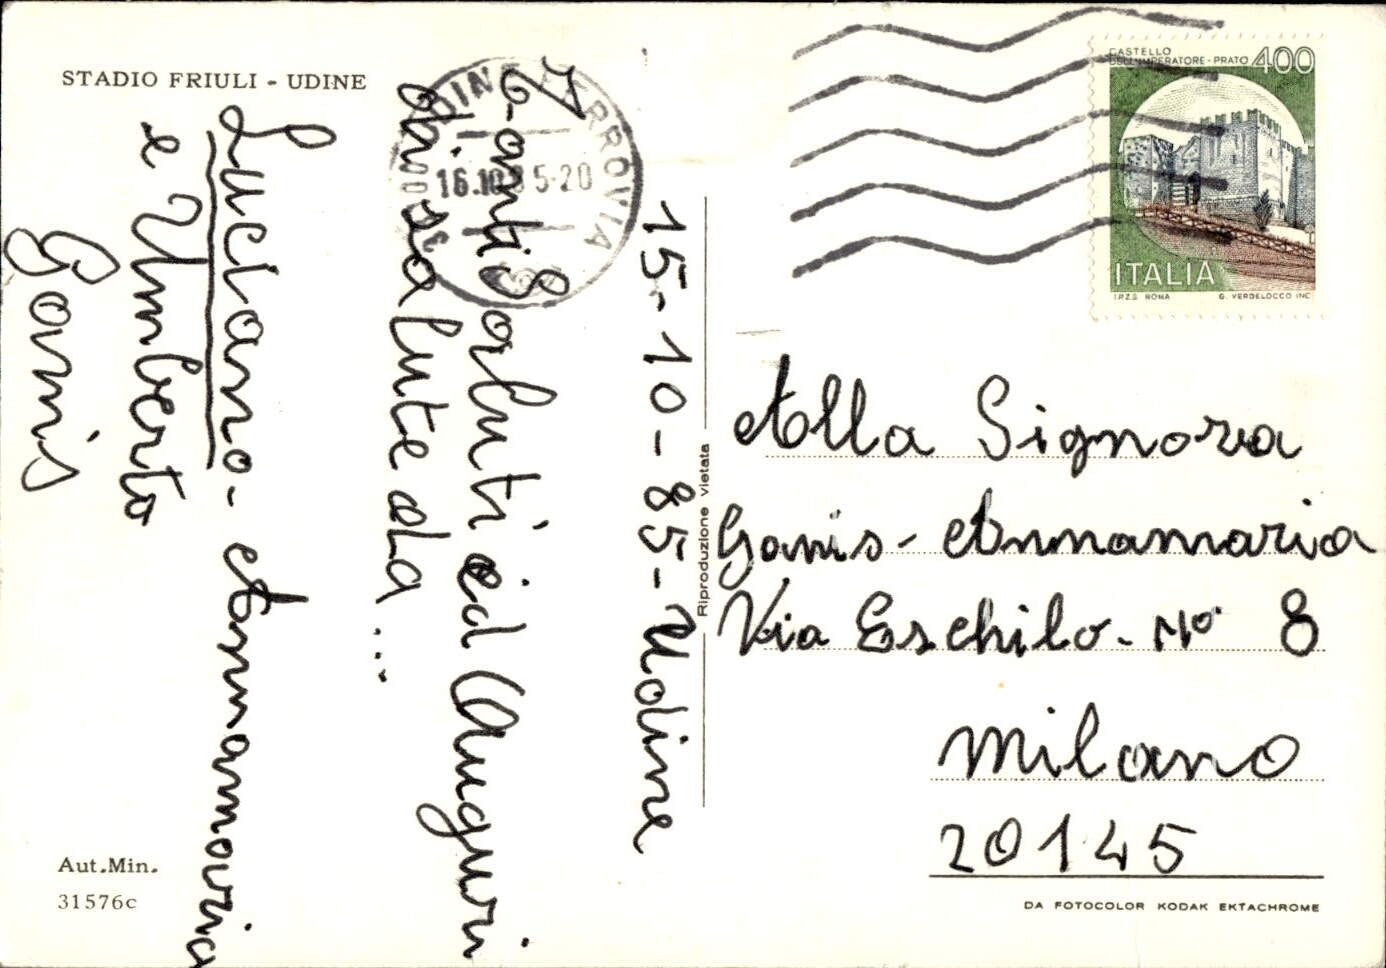 STADIO FRIULI - UDINE
15-10-85-Udine
Tanti Saluti ed Auguri
di salute da ...
Luciano - Annamaria
e Umberto
Ganis
Aut.Min.
31576c
Riproduzione vietata
UDINE FERROVIA
16.10.85-20
CASTELLO
DELL'IMPERATORE - PRATO 400
ITALIA
I.P.Z.S. ROMA G. VERDELOCCO INC.
Alla Signora
Ganis - Annamaria
Via Eschilo - No 8
Milano
20145
DA FOTOCOLOR KODAK EKTACHROME